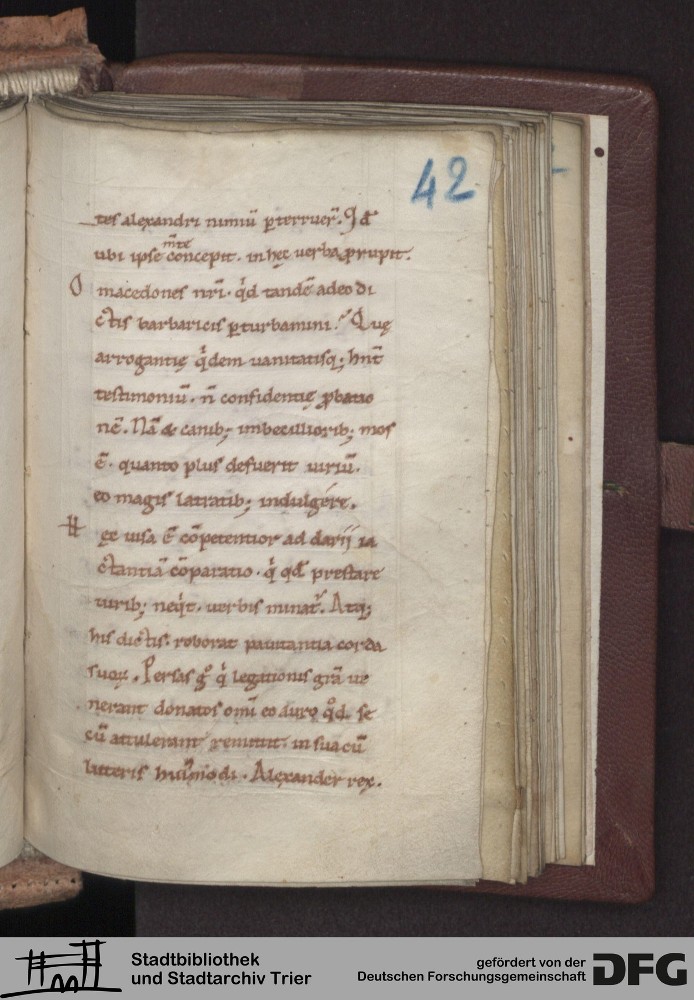 42
tes alexandri nimiū ꝑterruer̄. Id̄
ubi ipse mte concepit. in hęc uerba ꝓrupit.
O macedones nr̄i. qd̄ tandē adeo di
ctis barbaricis ꝑturbamini? Quę
arrogantię qͥdem uanitatisq; hn̄t
testimoniū. n̄ confidentię ꝓbatio
nē. Nā & canib; imbecillriorib; mos
ē. quanto plus defuerit uiriū.
eo magis latratib; indulgére.
ęc uisa ē cōpetentior ad darij ia
ctantiā cōparatio. qͥ qd̄ prestare
uirib; neqͥt. uerbis minat̄. Atq;
his dictis. roborat pauitantia corda
suoꝝ. Persas gͦ qͥ legationis grā ue
nerant donatos omī eo auro qd̄ se
cū attulerant remittit. in sua cū
litteris huiꝰmodi. Alexander rex.
Stadtbibliothek
und Stadtarchiv Trier
gefördert von der
Deutschen Forschungsgemeinschaft
DFG